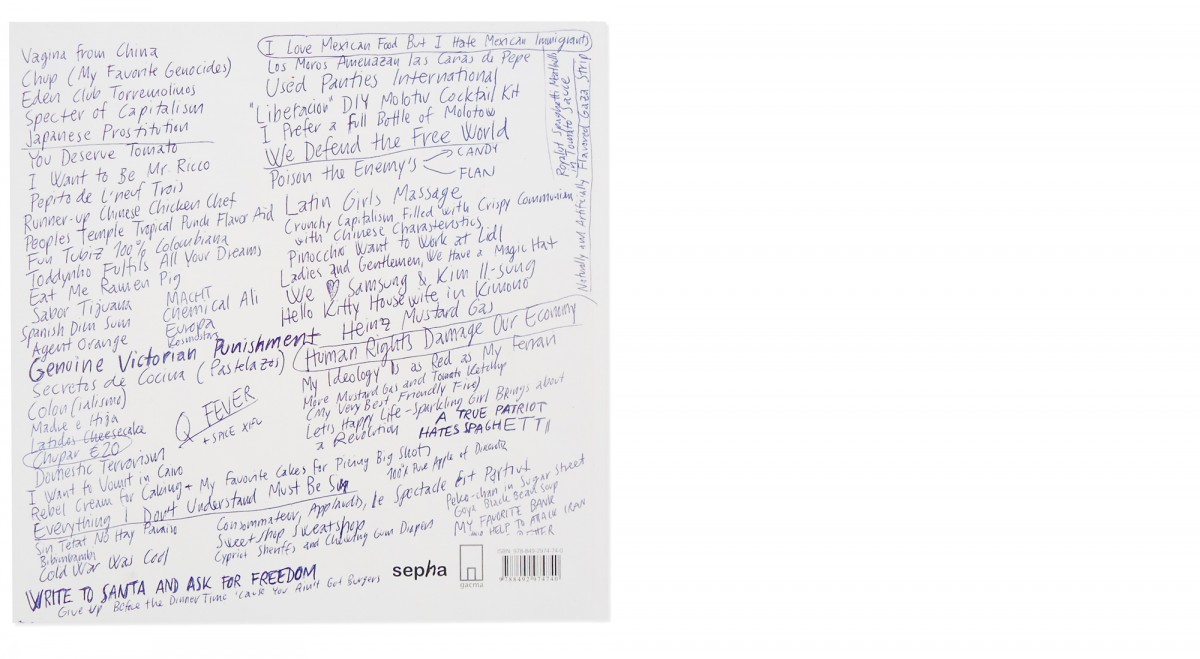 Vagina from China
Chup (My Favorite Genocides)
Eden Club Torremolinos
Specter of Capitalism
Japanese Prostitution
You Deserve Tomato
I Want to Be Mr. Ricco
Pepito de L'neuf Trois
Runner-up Chinese Chicken Chef
Peoples Temple Tropical Punch Flavor Aid
Fun Tubiz 100% Colombiana
Toddynho Fulfils All Your Dreams
Eat Me Ramen Pig
Sabor Tijuana
Spanish Dim Sum
Agent Orange
MACHT
Chemical Ali
Europa
Kosmostars
Genuine Victorian Punishment
Secretos de Cocina (Pastelazos)
Colon(ialismo)
Madre e Hija
Latidos Cheesecake
Chupar €20
Q FEVER
+ SPICE XIFU
Domestic Terrorism
I Want to Vomit in Cairo
Rebel Cream for Caking + My Favorite Cakes For Pieing Big Shots
Everything I Don't Understand Must Be Sin
Sin Tetat No Hay Paraiso
Bibimbambi
Cold War Was Cool
WRITE TO SANTA AND ASK FOR FREEDOM
Give up Before the Dinner Time 'Cause You Ain't Got Burgers
I Love Mexican Food But I Hate Mexican Immigrants
Los Moros Amenazan las Cañas de Pepe
Used Panties International
"Liberacion" DIY Molotiv Cocktail Kit
I Prefer a Full Bottle of Molotow
We Defend the Free World
Poison the Enemy's
CANDY
FLAN
Latin Girls Massage
Crunchy Capitalism Filled with Crispy Communism
with Chinese Charasteristics
Pinocchio Want to Work at Lidl
Ladies and Gentlemen, We Have a Magic Hat
We ♡ Samsung & Kim Il-sung
Hello Kitty Housewife in Kimono
Heinz Mustard Gas
Human Rights Damage Our Economy
My Ideology Is as Red as My Ferrari
More Mustard Gas and Tomato Ketchup
(My Very Best Friendly Five)
Lets Happy Life - Sparkling Girl Brings about
a Revolution
A TRUE PATRIOT
HATES SPAGHETTI
100% Pure Apple of
Consommateur, Applaudis, le Spectacle Est Partout
Sweetshop Sweatshop
Cypriot Sheriffs and Chewing Gum Diapers
Peko-chan in Sugar Street
Goya Black Bean Soup
MY FAVORITE BANK
HELP TO ATTACK IRAN
Spaghetti Meatballs
in Tomato Sauce
Naturally and Artificially Flavored Gaza Strip
sepha
gacma
ISBN: 978-849-2974-74-0
9788492974740